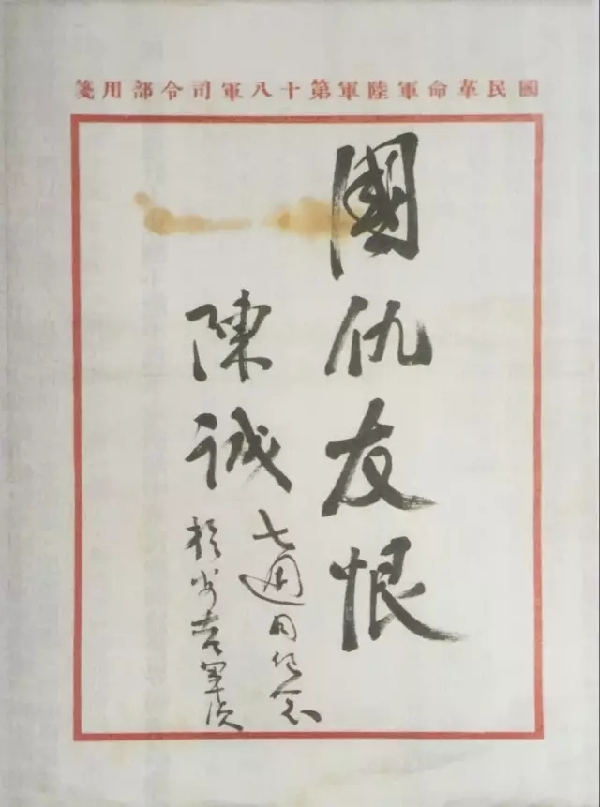 國民革命軍陸軍第十八軍司令部用箋
國仇友恨
陳誠
七週紀念
於吉軍次